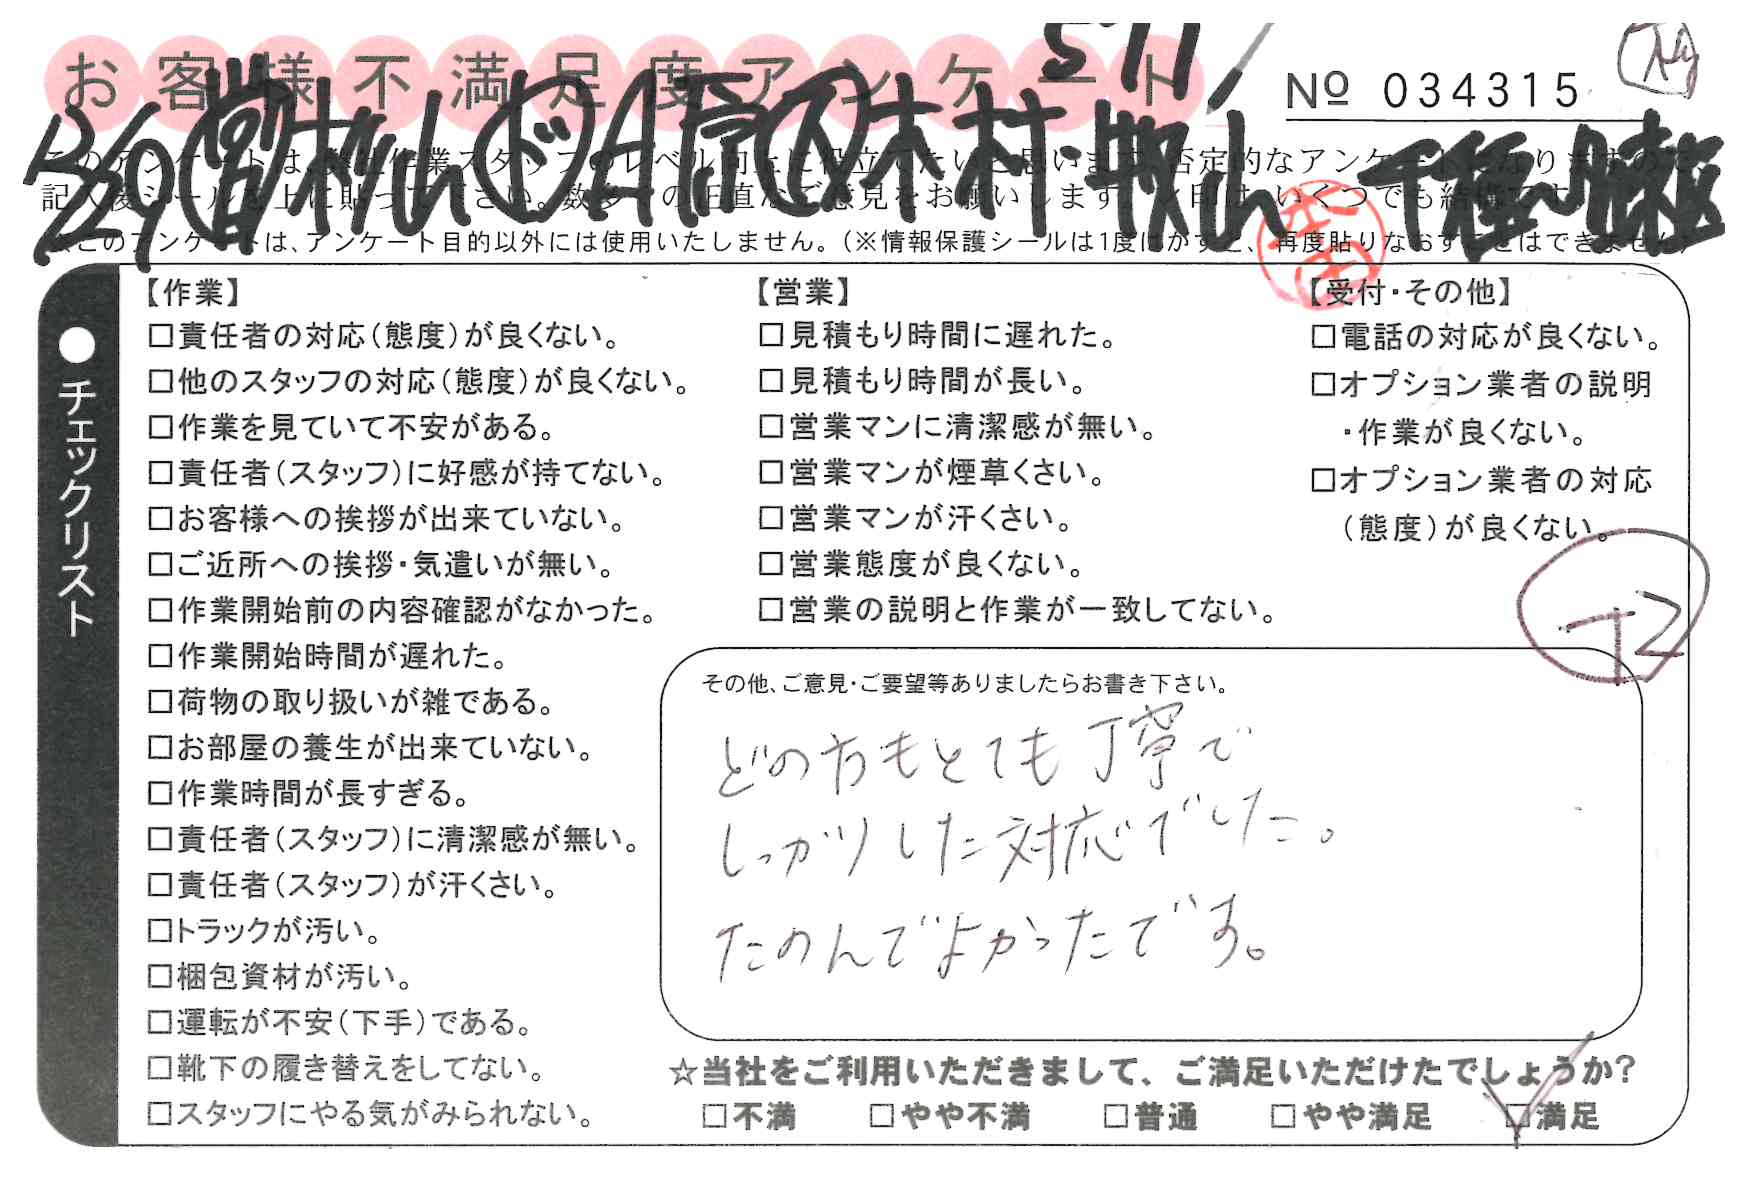 お客様不満足度アンケート
No 034315
このアンケートは、弊社作業スタッフのレベル向上に役立てたいと思います。否定的なアンケートとなりますので、
記入後シールを上に貼って下さい。数多くの正直なご意見をお願いします。レ印は、いくつでも結構です。
※このアンケートは、アンケート目的以外には使用いたしません。(※情報保護シールは1度はがすと、再度貼りなおすことはできません)
●チェックリスト
【作業】
□責任者の対応(態度)が良くない。
□他のスタッフの対応(態度)が良くない。
□作業を見ていて不安がある。
□責任者(スタッフ)に好感が持てない。
□お客様への挨拶が出来ていない。
□ご近所への挨拶・気遣いが無い。
□作業開始前の内容確認がなかった。
□作業開始時間が遅れた。
□荷物の取り扱いが雑である。
□お部屋の養生が出来ていない。
□作業時間が長すぎる。
□責任者(スタッフ)に清潔感が無い。
□責任者(スタッフ)が汗くさい。
□トラックが汚い。
□梱包資材が汚い。
□運転が不安(下手)である。
□靴下の履き替えをしてない。
□スタッフにやる気がみられない。
【営業】
□見積もり時間に遅れた。
□見積もり時間が長い。
□営業マンに清潔感が無い。
□営業マンが煙草くさい。
□営業マンが汗くさい。
□営業態度が良くない。
□営業の説明と作業が一致してない。
【受付・その他】
□電話の対応が良くない。
□オプション業者の説明
・作業が良くない。
□オプション業者の対応
(態度)が良くない。
その他、ご意見・ご要望等ありましたらお書き下さい。
どの方もとても丁寧で
しっかりした対応でした。
たのんでよかったです。
☆当社をご利用いただきまして、ご満足いただけたでしょうか?
□不満 □やや不満 □普通 □やや満足 □満足